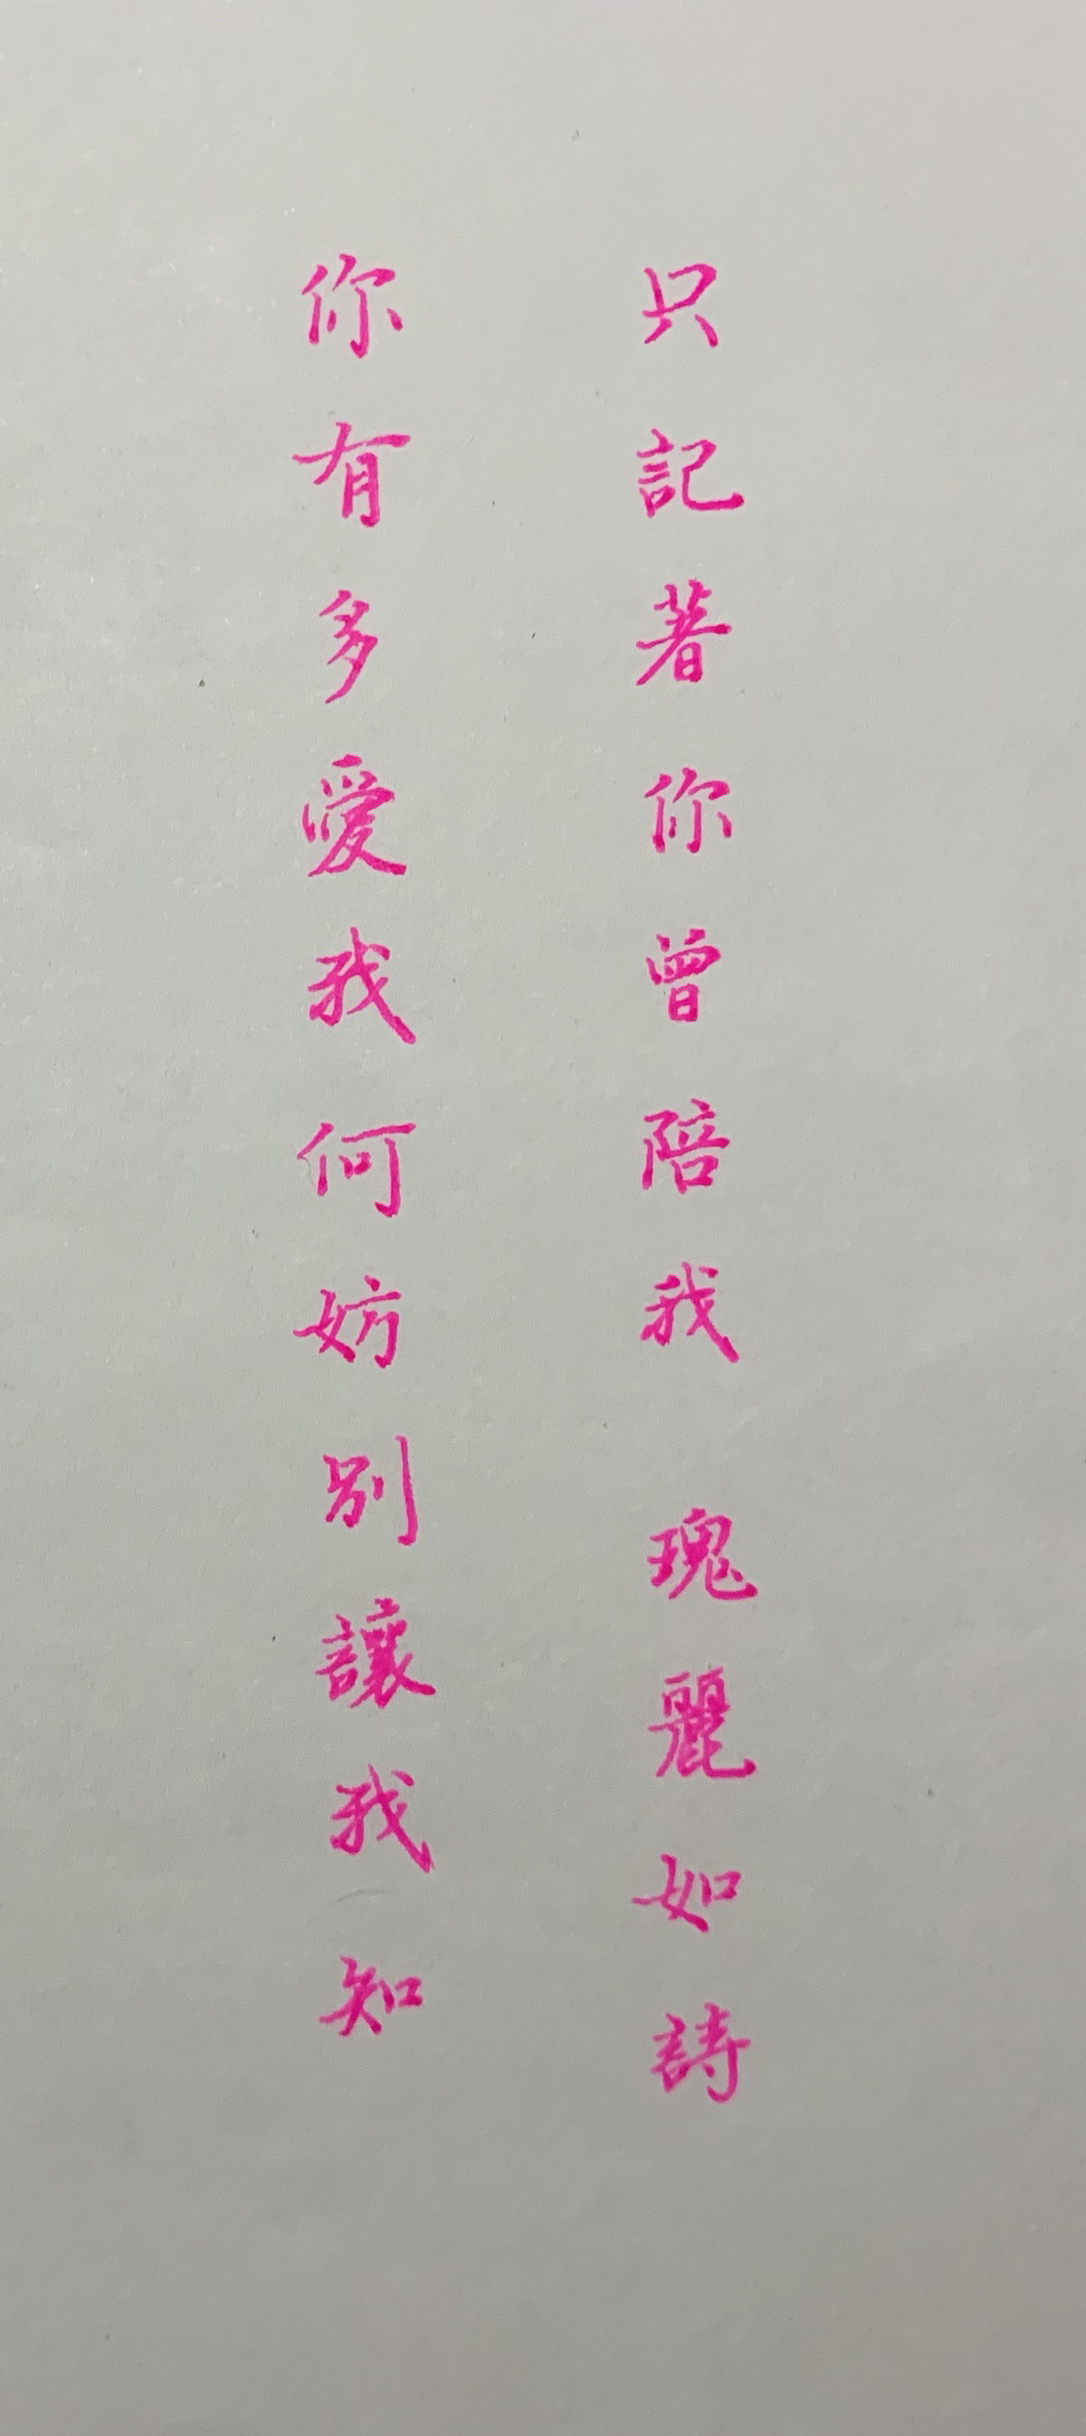 只記著你曾陪我 瑰麗如詩
你有多愛我何妨別讓我知